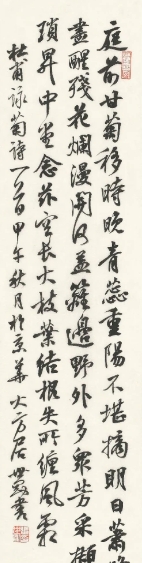 庭前甘菊移時晚青蕊重陽不堪摘明日蕭條
盡醒殘花爛漫開何益籬邊野外多衆芳采擷
瑣昇中堂念茲空長大枝葉結根失所纏風霜
杜甫詠菊詩一首甲午秋月於京華大方居